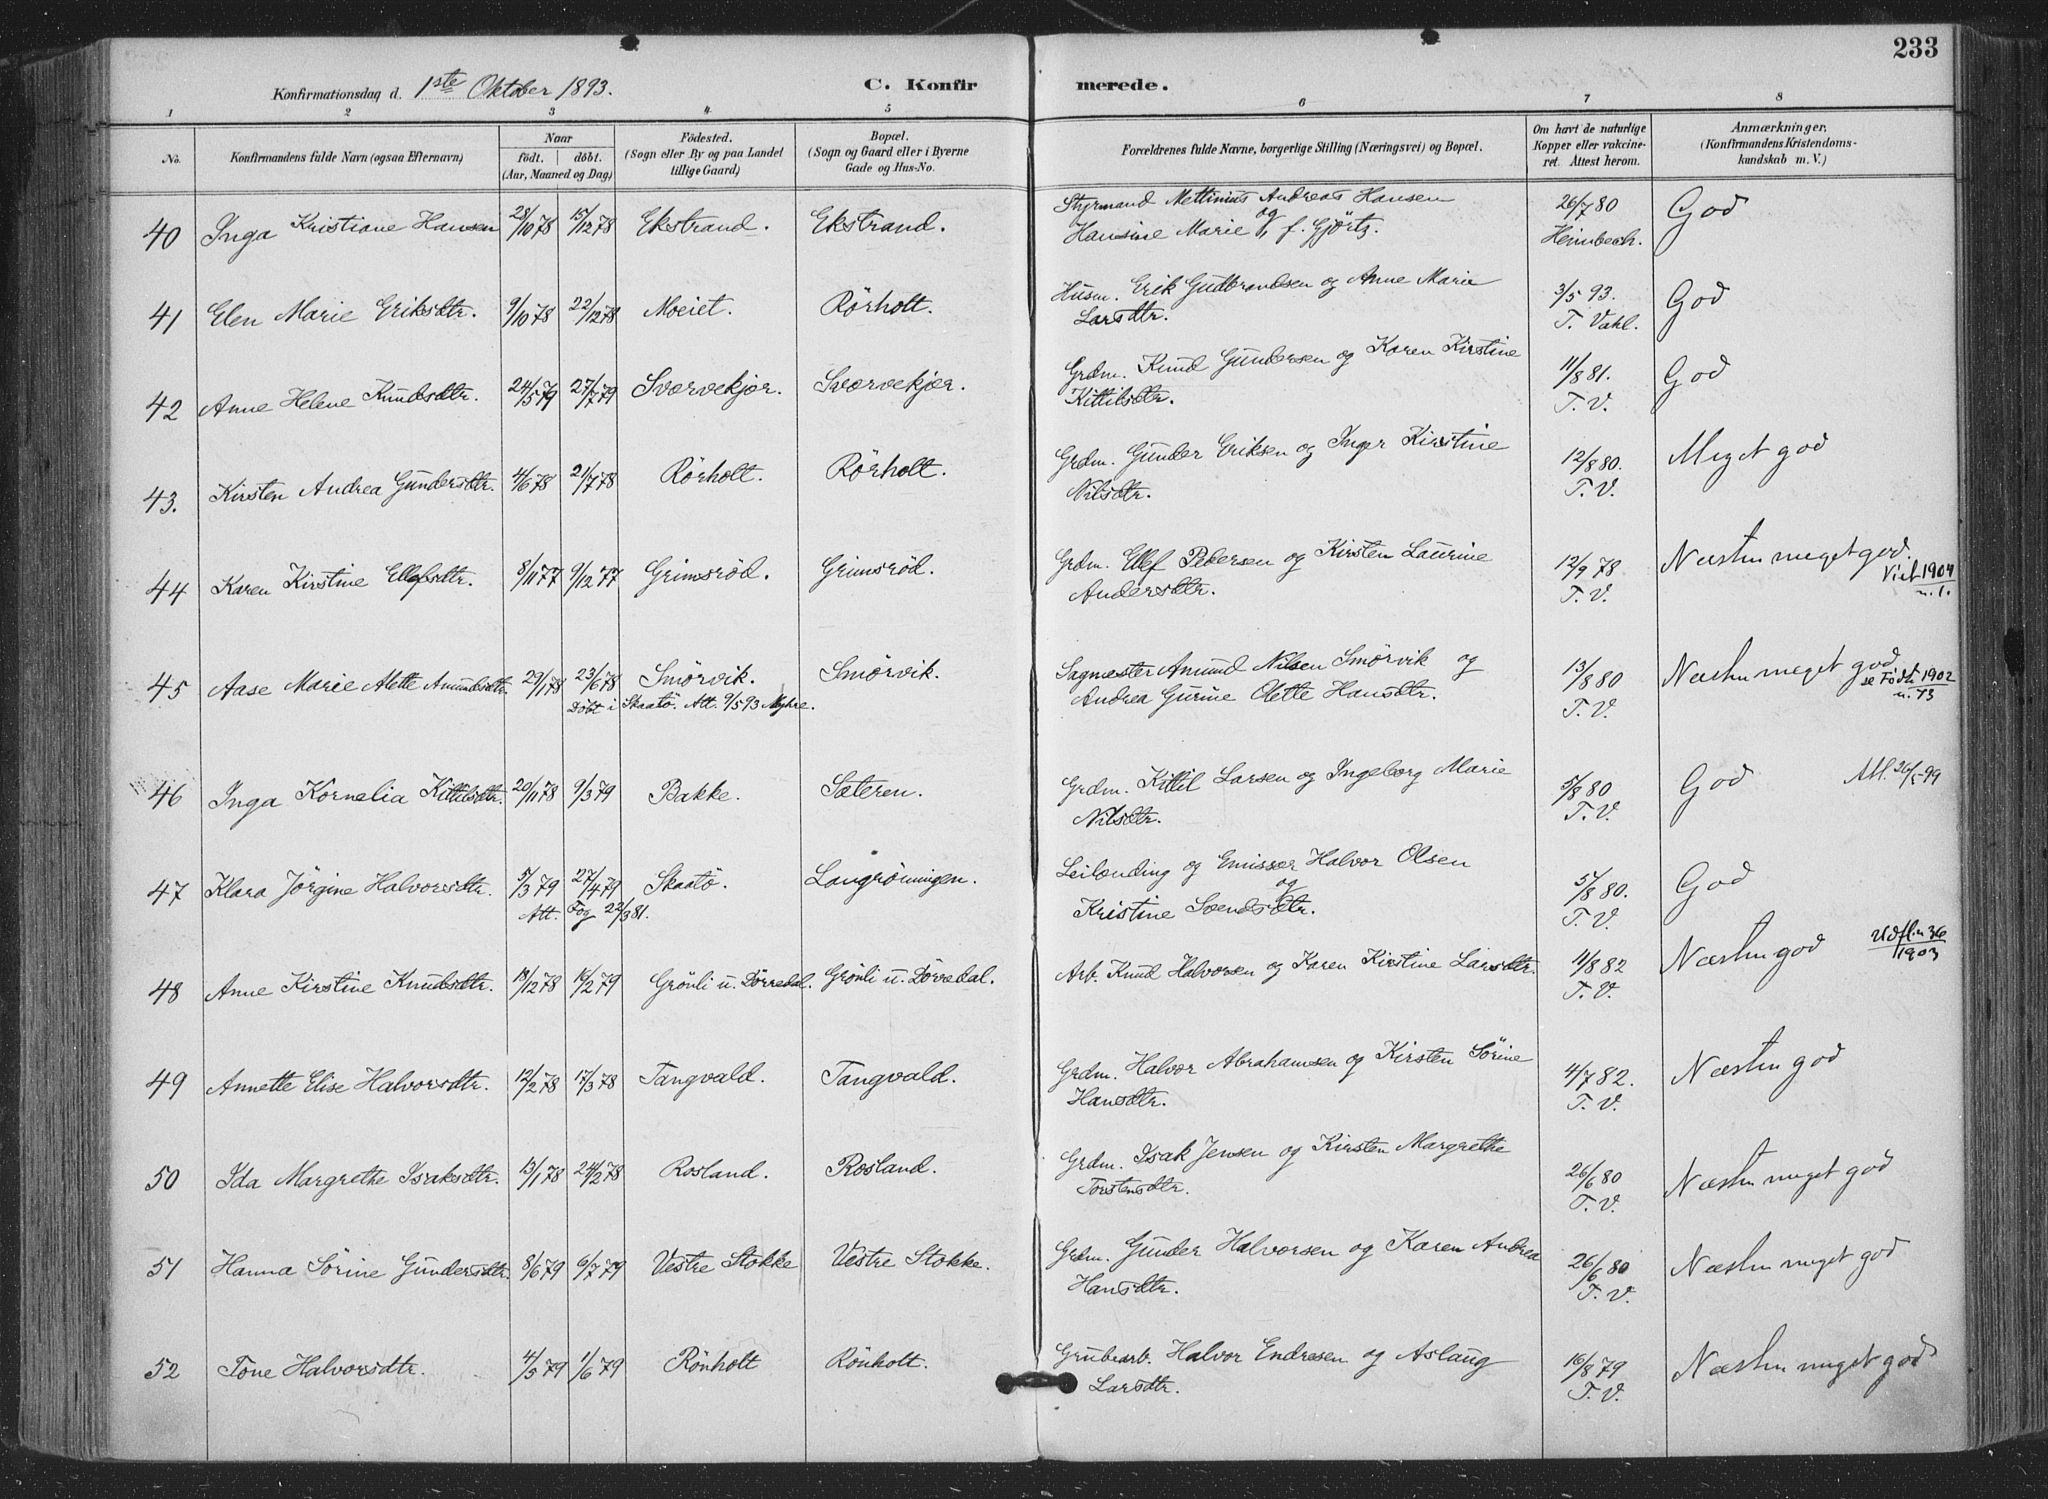 233
Konfirmationsdag d. 1ste Oktober 1893.
C. Konfirmerede.
1 2 3 4 5 6 7 8
No. Konfirmandens fulde Navn (ogsaa Efternavn) Naar födt. döbt. (Aar, Maaned og Dag) Födested. (Sogn eller By og paa Landet tillige Gaard) Bopæl. (Sogn og Gaard eller i Byerne Gade og Hus-No. Forældrenes fulde Navne, borgerlige Stilling (Næringsvei) og Bopæl. Om havt de naturlige Kopper eller vakcineret. Attest herom. Anmærkninger. (Konfirmandens Kristendomskundskab m. V.)
40 Inga Kristiane Hansen 28/10 78 15/12 78 Ekstrand. Ekstrand. Styrmand Mettinius Andreas Hansen og 26/7 80 God
Hansine Marie f. Gjörtz. Heimbech.
41 Elen Marie Eriksdtr. 9/10 78 22/12 78 Moeiet. Rörholt. Husm. Erik Gudbrandsen og Anne Marie 3/5 93. God
Larsdtr. T. Vahl.
42 Anne Helene Knudsdtr. 24/5 79 27/7 79 Sværvekjær. Sværvekjær. Grdm. Knud Gundersen og Karen Kirstine 11/8 81. God
Kittilsdtr. T. V.
43. Kirsten Andrea Gundersdtr. 4/6 78 21/7 78 Rörholt. Rörholt. Grdm. Gunder Eriksen og Inger Kirstine 12/8 80. Meget god
Nilsdtr. T. V.
44 Karen Kirstine Ellefsdtr. 8/11 77 9/12 77 Grimsröd. Grimsröd. Grdm. Ellef Pedersen og Kirsten Laurine 12/9 78 Næsten meget god. Viet 1904
Andersdtr. T. V. n. 1.
45 Aase Marie Alette Amundsdtr. 29/1 78 23/6 78 Smörvik. Smörvik. Sagmester Amund Nilsen Smörvik og 13/8 80 Næsten meget god se Födte 1902
Döbt i Skaatö. Att. 9/5 93 Myhre. Andrea Gurine Olette Hansdtr. T. V. n. 73
46 Inga Kornelia Kittilsdtr. 20/11 78 9/3 79 Bakke. Sæteren. Grdm. Kittil Larsen og Ingeborg Marie 5/8 80 God Att. 26/5 99
Nilsdtr. T. V.
47 Klara Jörgine Halvorsdtr. 5/3 79 27/4 79 Skaatö. Langrönningen. Leilænding og Emissær Halvor Olsen og 5/8 80. God
Att. Fog 22/3 81. Kristine Svendsdtr. T. V.
48 Anne Kirstine Knudsdtr. 19/12 78 16/2 79 Grönli u. Dörredal. Grönli u. Dörredal. Arb. Knud Halvorsen og Karen Kirstine Larsdtr. 11/8 82 Næsten god Udfl. n 36
T. V. 1903
49 Annette Elise Halvorsdtr. 12/2 78 17/3 78 Tangvald. Tangvald. Grdm. Halvor Abrahamsen og Kirsten Sörine 4/7 82. Næsten god
Hansdtr. T. V.
50 Ida Margrethe Isaksdtr. 13/1 78 24/2 78 Rosland. Rosland. Grdm. Isak Jensen og Kirsten Margrethe 26/6 80 Næsten meget god
Torstensdtr. T. V.
51 Hanna Sörine Gundersdtr. 8/6 79 6/7 79 Vestre Stokke Vestre Stokke. Grdm. Gunder Halvorsen og Karen Andrea 26/6 80 Næsten meget god
Hansdtr. T. V.
52 Tone Halvorsdtr. 4/5 79 1/6 79 Rönholt Rönholt. Grubearb. Halvor Endresen og Aslaug 16/8 79 Næsten meget god
Larsdtr. T. V.